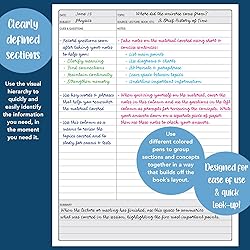 Clearly
defined
sections
Use the visual
hierarchy to
quickly and
easily identify
the information
you need, in
the moment
you need it.
DATE June 15
TOPIC Where did the universe come from?
SUBJECT Physics
SOURCE (LECTURE, BOOK, ETC) A Brief History of Time
CUES & QUESTIONS
NOTES
Record questions soon
after taking your notes
to help you:
- Clarify meaning
- Find connections
- Maintain continuity
- Strengthen memory
Use key words or phrases
that help you remember
your notes.
Use this column as a
means to review the
topics covered and to
study for exams & tests
Take notes on the material covered using short &
concise sentences:
- List main points
- Use diagrams & charts
- Abbreviate & paraphrase
- Leave space between topics
- Underline important information
When quizzing yourself on the material, cover the
notes in this column and use the questions on the left
column as prompts for answering the concepts. Write
your answers down on a separate piece of paper,
then use these notes to check your answers.
Use
different colored
pens to group
sections and concepts
together in a way
that builds off the
book's layout.
Designed for
ease of use
& quick
look-up!
SUMMARY
When the lecture or meeting has finished, use this space to summarize
what was covered in the session, highlighting the five most important points.